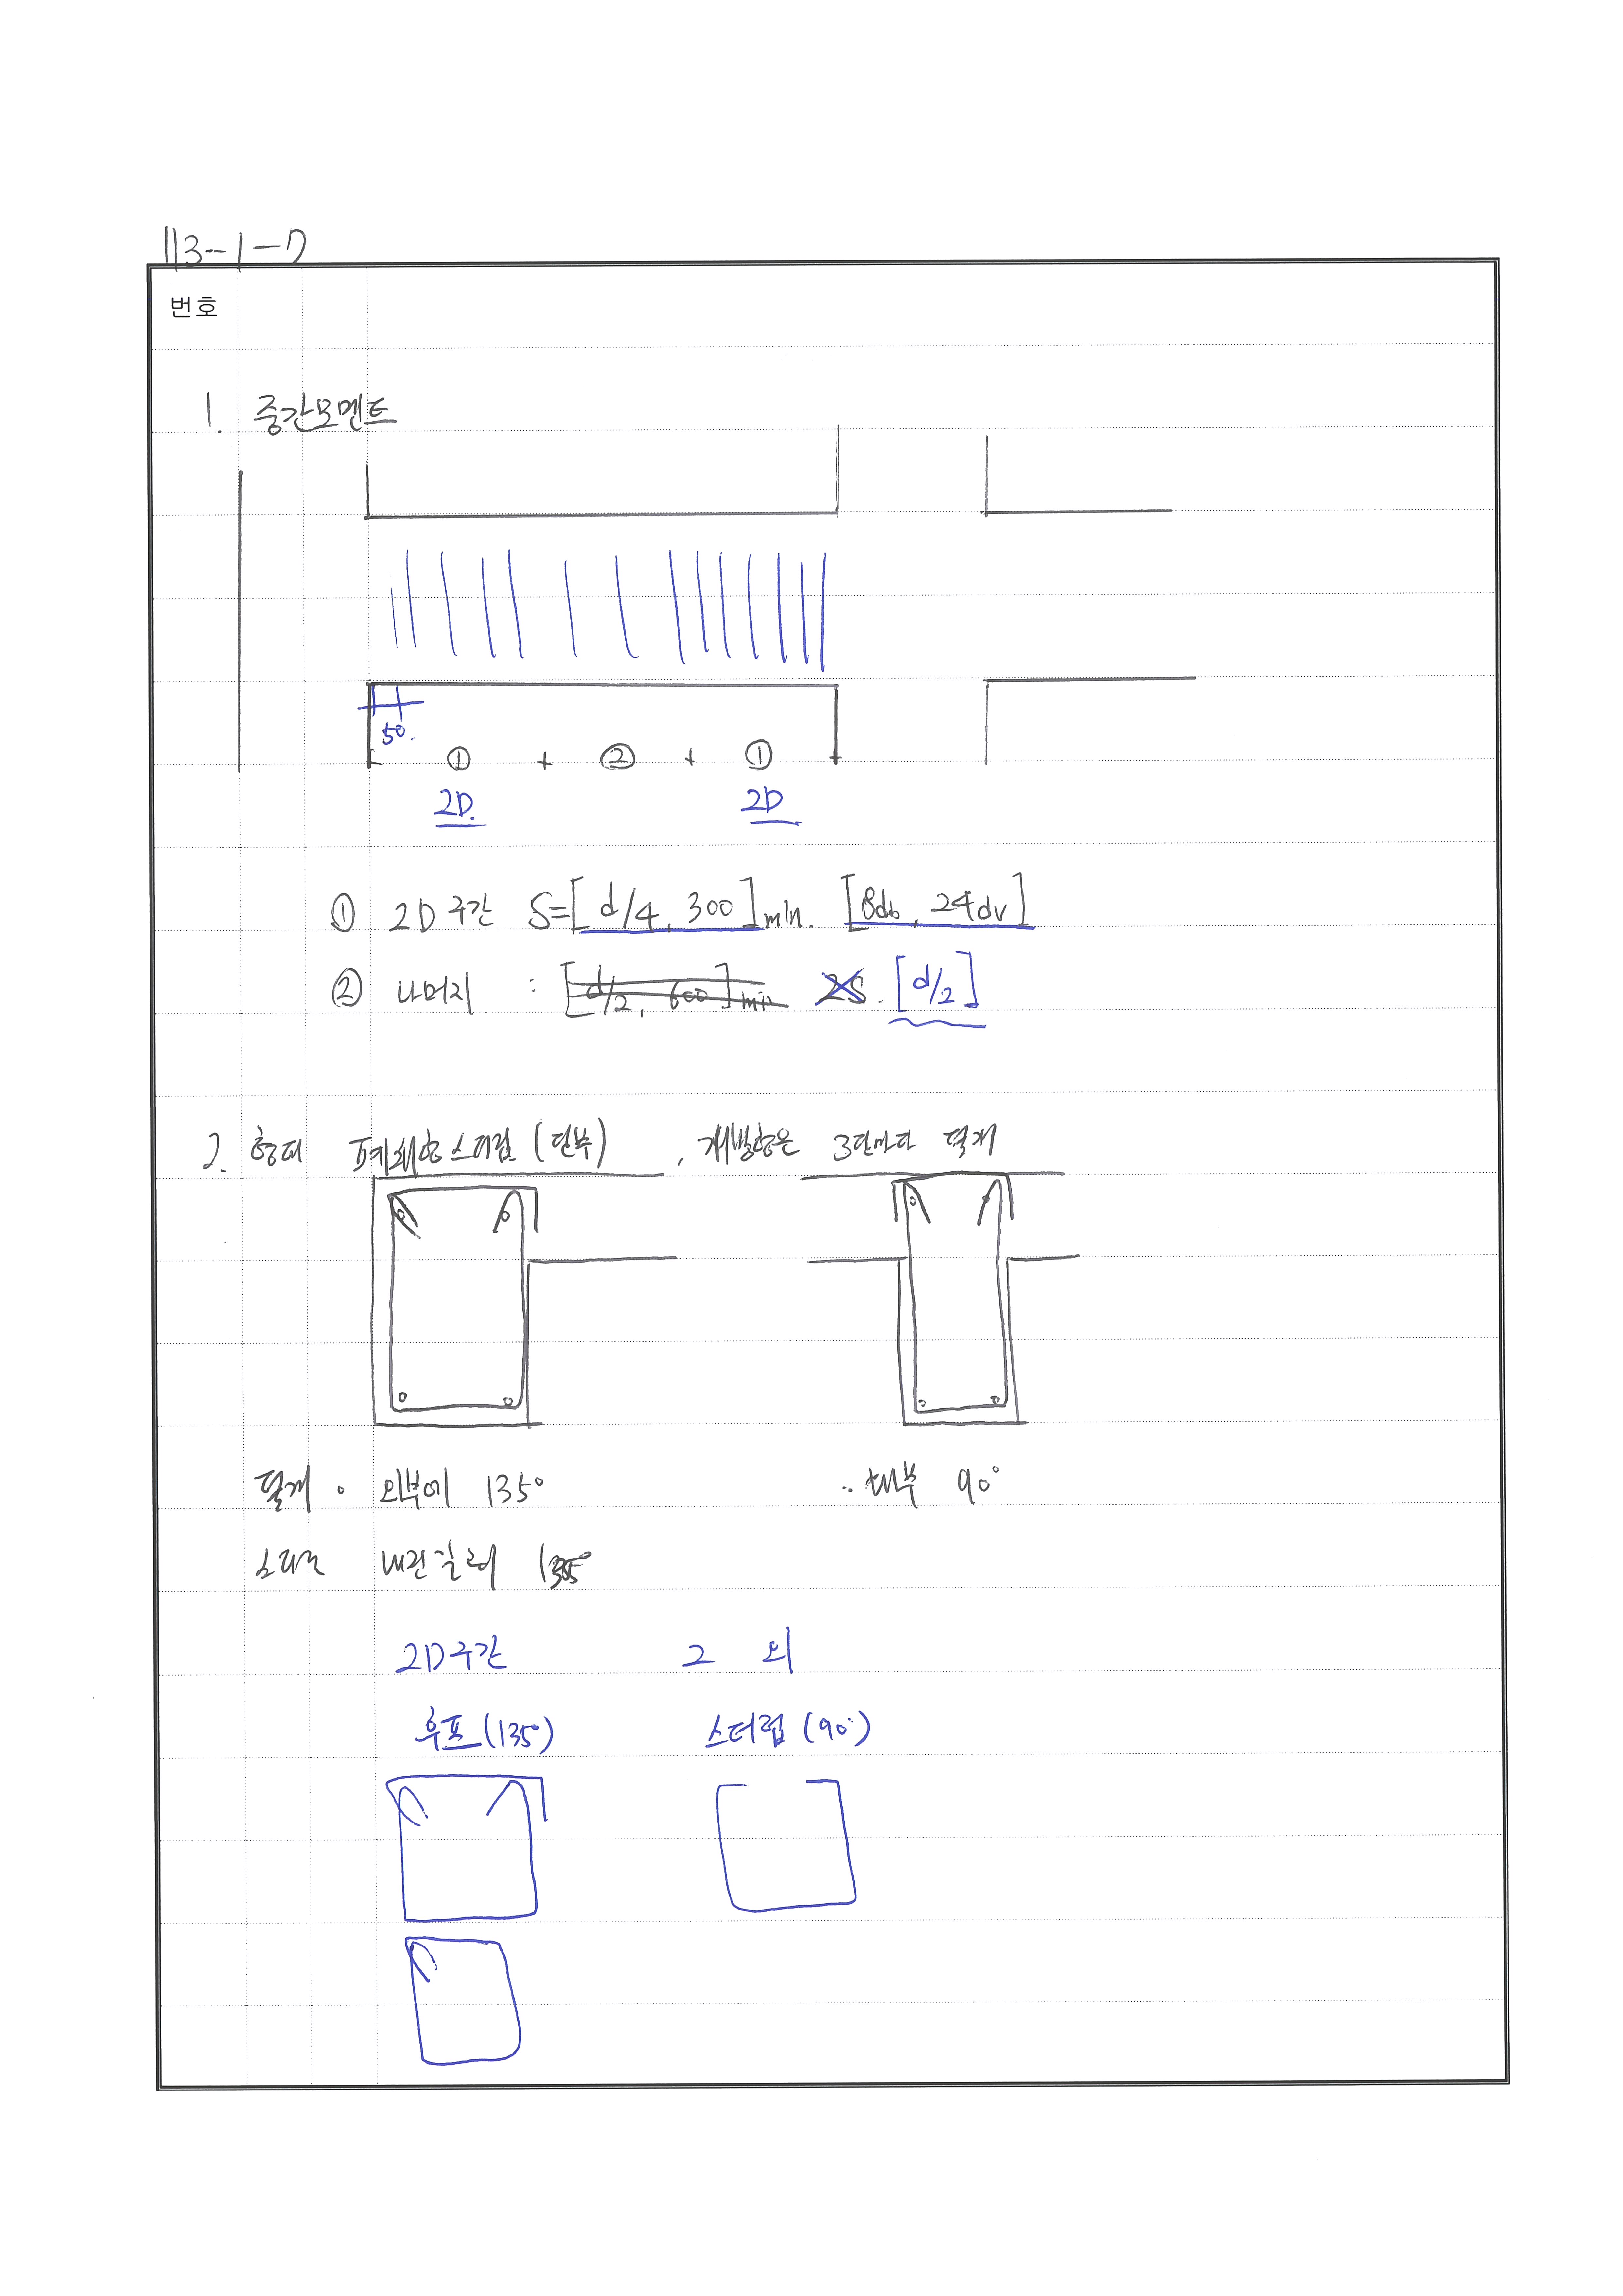 113-1-7
번호
1. 중간모멘트
50.
① + ② + ①
2D. 2D
① 2D구간 S=[d/4, 300]min. [8db, 24dv]
② 나머지 : [d/2, 600]min 2S. [d/2]
2. 형태 폐쇄형스터럽 (단부), 개방형은 3단마다 덮개
덮개. 외부에 135° .. 내부 90°
스터럽 내진갈고리 135°
2D구간 그 외
후프(135°) 스터럽(90°)